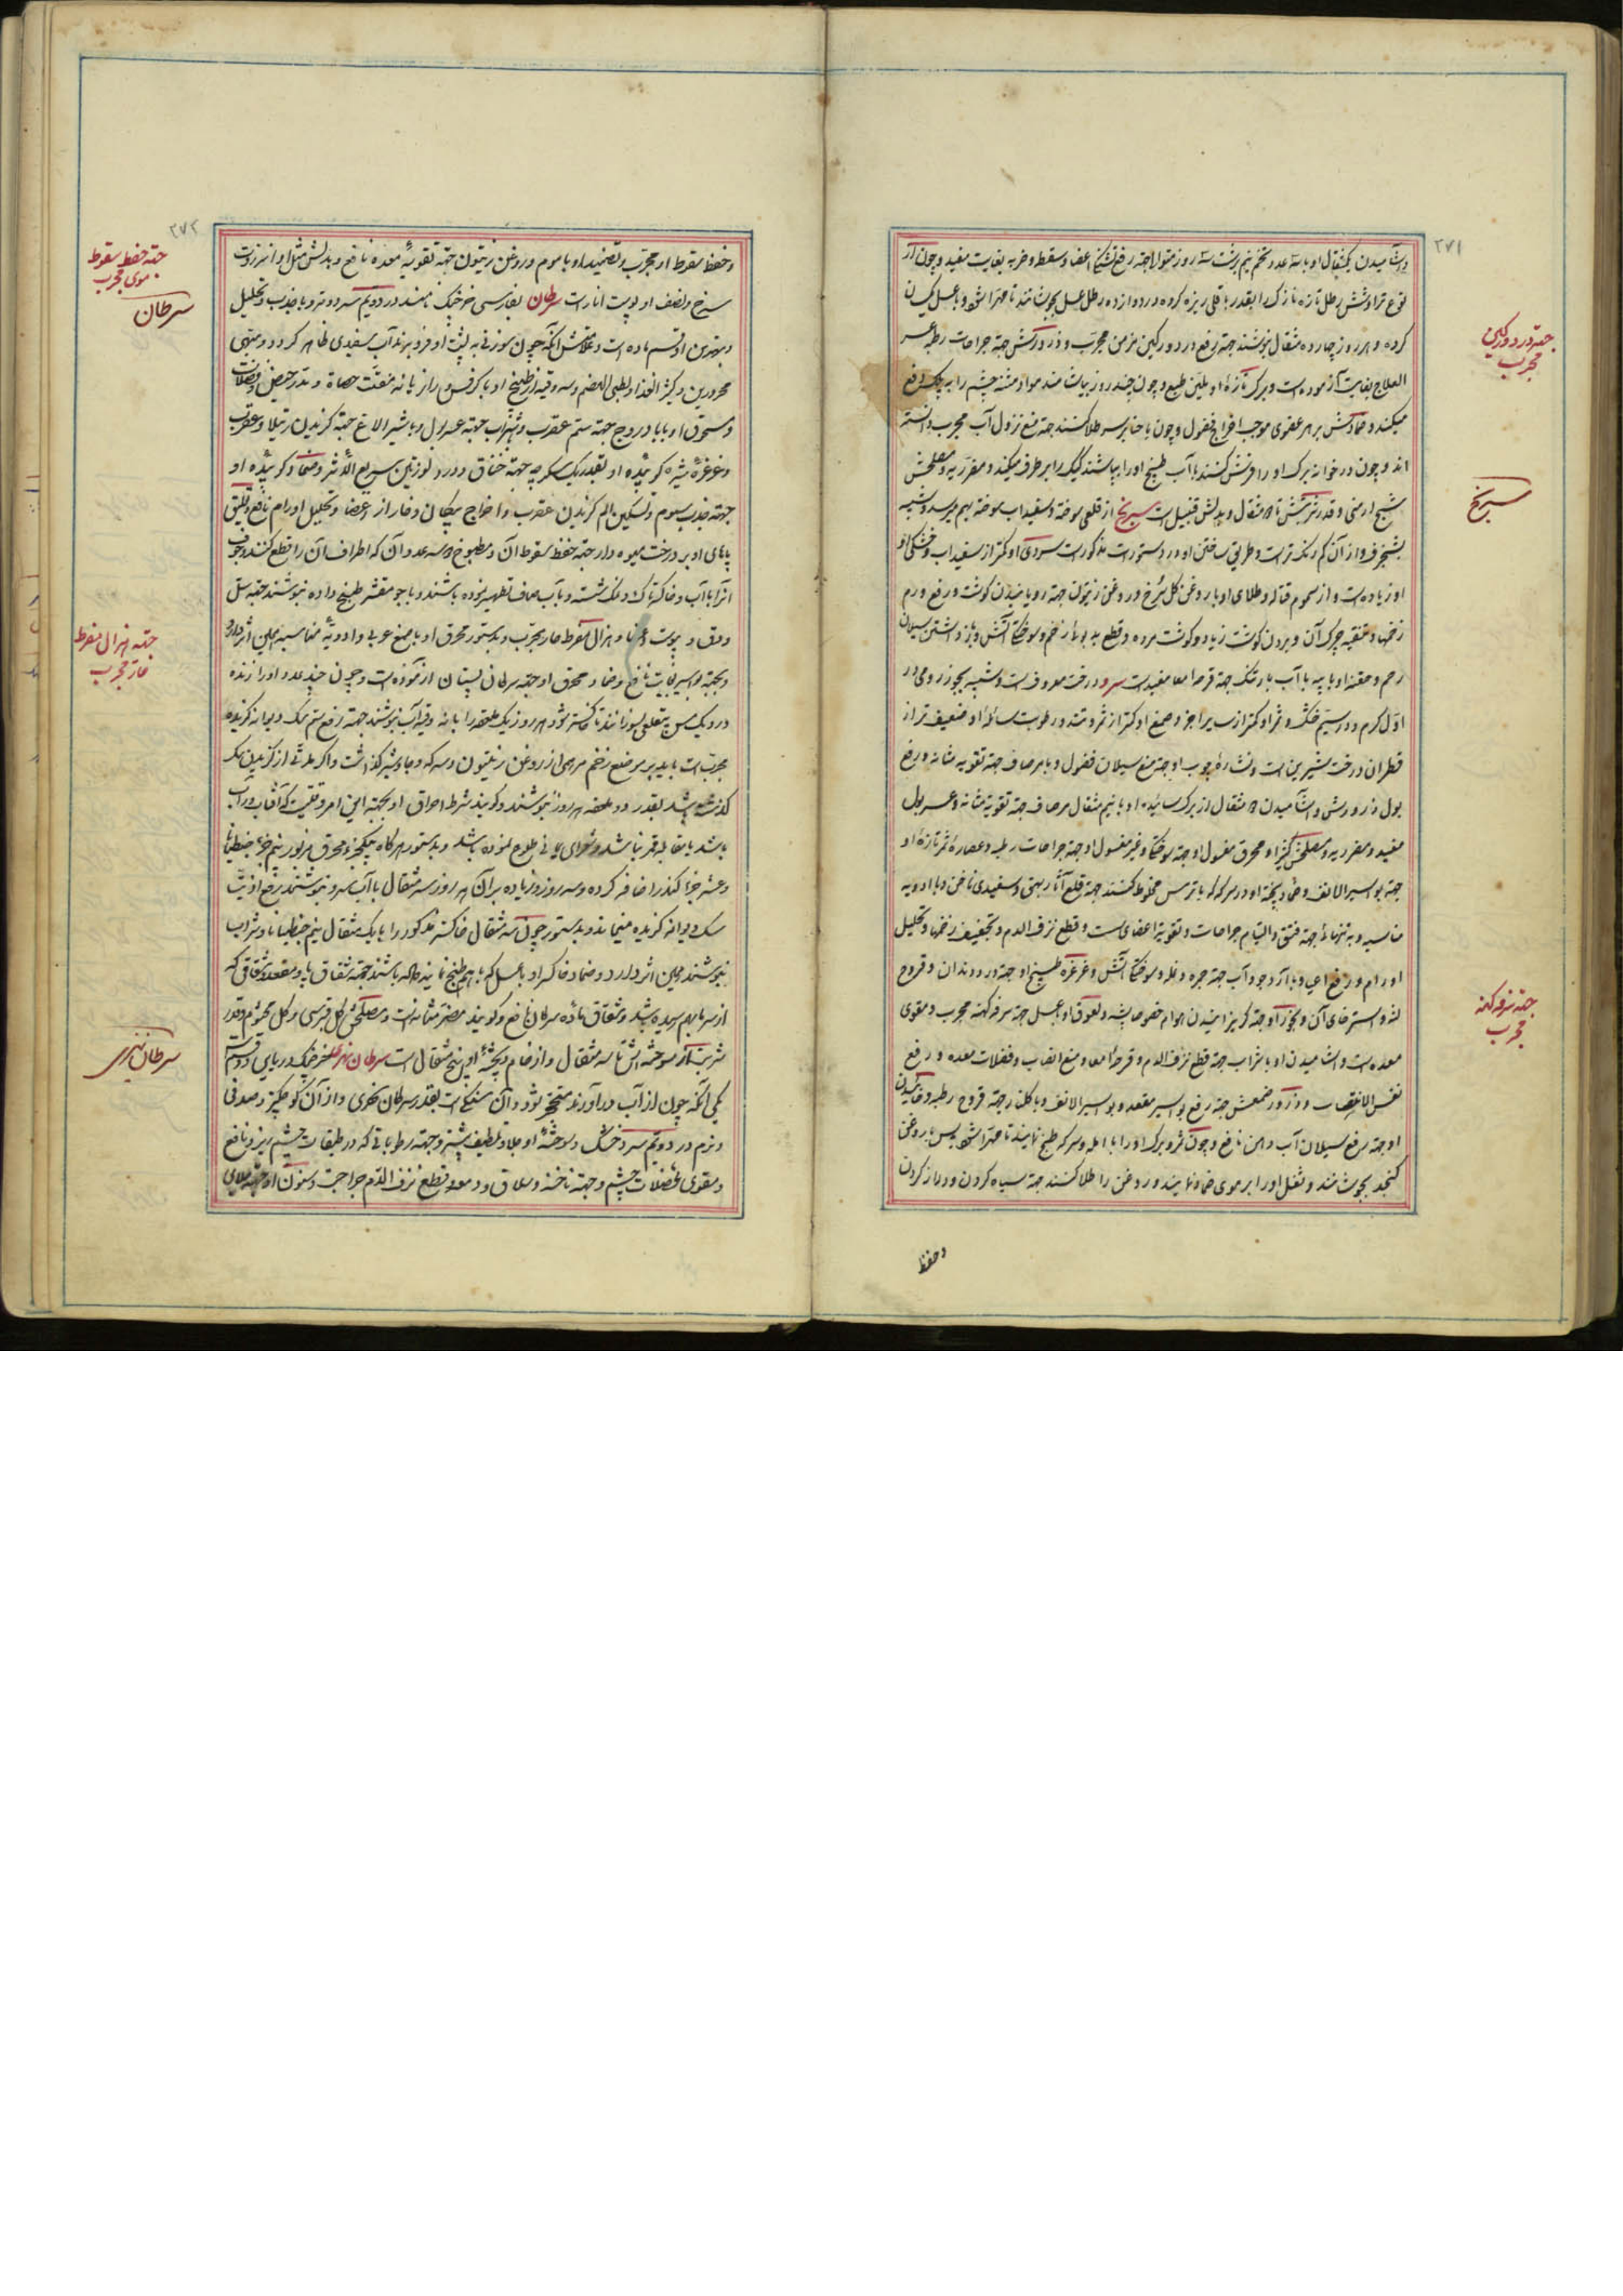 ۲۷۱
و آشامیدن یکمثقال او با سه عدد تخم نیم برشت سه روز متوالی جهة رفع شکستگی اعضا و سقطه و ضربه بغایت مفید و چون از
نوع تر او شش رطل تازه نازک را بقدر باقلی ریزه کرده در دوازده رطل عسل بجوشانند تا مهرا شود و با عسل یکسان
کرده و هر روز چهارده مثقال بنوشند جهة رفع درد ورکین مزمن مجرب و ذرور برکش جهة جراحات رطبه عسر
العلاج بغایت آزموده است و برک تازهٔ او ملین طبع و چون چند روز بیاشامند مواد مثنه چشم را به پلک دفع
میکند و ضمادش بر هر عضوی موجب افراغ فضول و چون با حنا بر سر طلا کنند جهة منع نزول آب مجرب دانسته
اند و چون در خوابه برک او را فرش کنند یا آب طبیخ او را بپاشند کیک را برطرف میکند و مضر ریه و مصلحش
شیح ارمنی و قدر شربتش تا ۵ مثقال و بدلش قنبیل است سیرنج از قلعی سوخته و سفیداب سوخته بهم میرسد و شبیه
بشنجرف و از آن کم رنک تر است و طریق ساختن او در دستورات مذکور است سردی او کمتر از سفیداب و خشکی او
از او زیاده است و از سموم قتاله و طلای او با روغن کل سرخ و روغن زیتون جهة رویانیدن کوشت و رفع ورم
زخمها و تنقیه چرک آن و بردن کوشت زیاد و کوشت مرده و قطع بدبویٔ زخم و سوختکی آتش و باز داشتن سیلان
رحم و حقنه او با پیه با آب بارتنک جهة قرحه امعا مفید است سرو درخت معروف است و شبیه بجوز رومی در
اول کرم و در سیم خشک و ثمر او کمتر از سایر اجزا و صمغ او کمتر از ثمر و تند و رطوبت سائلهٔ او ضعیف تر از
قطران درخت شربین است و نشارهٔ چوب او جهة منع سیلان فضول و با مر صاف جهة تقویه مثانه و رفع
بول در فرش و آشامیدن ۵ مثقال از برک سائیده او با نیم مثقال مر صاف جهة تقویة مثانه و عسر بول
مفید و مضر ریه و مصلحش کثیرا و محرق مغسول او جهة سوختکی و غیر مغسول او جهة جراحات رطبه و عصارهٔ ثمر تازهٔ او
جهة بواسیر الانف و ضماد پختهٔ او در سرکه که با ترمس مخلوط کنند جهة قلع آثار بهق و سفیدی ناخن و با ادویه
مناسبه و به تنهایٔ جهة فتق و التیام جراحات و تقویة اعضای سست و قطع نزف الدم و تجفیف زخمها و تحلیل
اورام و رفع اعیا و با آرد جو و آب جهة جمره و نمله و سوختکی آتش و غرغره طبیخ او جهة درد دندان و قروح
لثه و استرخای آن و بخور او جهة کریزانیدن هوام خصوصا پشه و لعوق او با عسل جهة سرفه کهنه مجرب و مقوی
معده است و آشامیدن او با شراب جهة قطع نزف الدم و قرحهٔ امعا و منع انصباب فضلات معده و رفع
نفس الانتصاب و ذرور صمغش جهة رفع بواسیر مقعد و بواسیر الانف و با کلنار جهة قروح رطبه و خائیدن
او جهة رفع سیلان آب دهن نافع و چون ثمر و برک او را با آمله و سرکه طبخ نمایند تا مهرا شود پس با روغن
کنجد بجوشانند و ثفل او را بر موی ضماد نمایند و روغن را طلا کنند جهة سیاه کردن و دراز کردن
وحفظ
جهة درد ورکین
مجرب
سیرنج
جهة سرفه کهنه
مجرب
۲۷۲
و حفظ سقوط او مجرب و تضمید او با موم و روغن زیتون جهة تقویهٔ معده نافع و بدلش مثل او انزروت
سرخ و نصف او پوست انار است سرطان بفارسی خرخنک نامند در دویم سرد و تر و با جذب و تحلیل
و بهترین او قسم ماده است و علامتش آنکه چون سوزنی به پشت او فرو برند آب سفیدی ظاهر کردد و مبهی
محرورین و کثیر الغذا و بطی الهضم و سه وقیه از طبیخ او با کرفس و رازیانه مفتت حصاة و مدر حیض و فضلات
و مسحوق او با بادروج جهة سم عقرب و بشراب جهة عسر بول و با شیر الاغ جهة کزیدن رتیلا و عقرب
و غرغرهٔ شیره کوبیدهٔ او بقدر یک سکرجه جهة خناق و درد لوزتین سریع الاثر و ضماد کوبیدهٔ او
جهة جذب سموم و تسکین الم کزیدن عقرب و اخراج پیکان و خار از اعضا و تحلیل اورام نافع و تعلیق
پاهای او بر درخت میوه دار جهة حفظ سقوط آن و مطبوخ ۵ سه عدد آن که اطراف آن را قطع کنند و جوف
آنرا با آب و خاکستر تاک و نمک شسته و بآب صاف تطهیر نموده باشند و با جو مقشر طبیخ داده بنوشند جهة سل
و دق و یبوست و هزال مفرط حار مجرب و بدستور محرق او با صمغ عربی و ادویهٔ مناسبه همین اثر دارد
و بجهة بواسیر بغایت نافع و ضماد محرق او جهة سرطان پستان آزموده است و چون چند عدد او را زنده
در دیک مس بی قلعی بسوزانند تا خاکستر شود هر روز یک ملعقه را با نه وقیه آب بنوشند جهة رفع سم سک دیوانه کزیده
مجرب است باید بر موضع زخم مرهمی از روغن زیتون و سرکه و جاوشیر کذاشت و اکر مدتی از کزیدن سک
کذشته باشد بقدر دو ملعقه هر روز بنوشند و کویند شرط احراق او بجهة این امر وقتیست که آفتاب در اسد
باشد با مقابله قمر نباشد و شعرای یمانی طلوع نموده باشد و بدستور هرکاه یکجزو محرق مزبور نیم جزء جنطیانا
و عشر جزء کندر اضافه کرده و سه روز و زیاده بر آن هر روز سه مثقال با آب سرد بنوشند رفع اذیت
سک دیوانه کزیده مینماید و بدستور چون سه مثقال خاکستر مذکور را با یک مثقال نیم جنطیانا و شراب
بنوشند همین اثر دارد و ضماد خاکستر او با عسل که با هم طبخ نمایند مالیده باشند جهة شقاق پا و مقعد و شقاقی که
از سرما بهم رسیده باشد و شقاق مادهٔ سرطان نافع و کویند مضر مثانه است و مصلحش کل قبرسی و کل مختوم و قدر
شربت از سوخته اش تا سه مثقال و از خام و پختهٔ او پنج مثقال است سرطان نهری خرچنک دریایی و دو قسم
یکی آنکه چون از آب درآورند متحجر شود و آن سنکی است بقدر سرطان نهری و از آن کوچکتر و صدفی
و نرم در دویم سرد و خشک و سوختهٔ او جلا و تلطیف بیشتر و جهة رطوباتی که در طبقات چشم ریزد نافع
و مقوی عضلات چشم و جهة ناخنه و سلاق و دمعه و قطع نزف الدم جراحت و سنون او جهة جلای
جهة حفظ سقوط
موی مجرب
سرطان
جهة هزال مفرط
حار مجرب
سرطان نهری